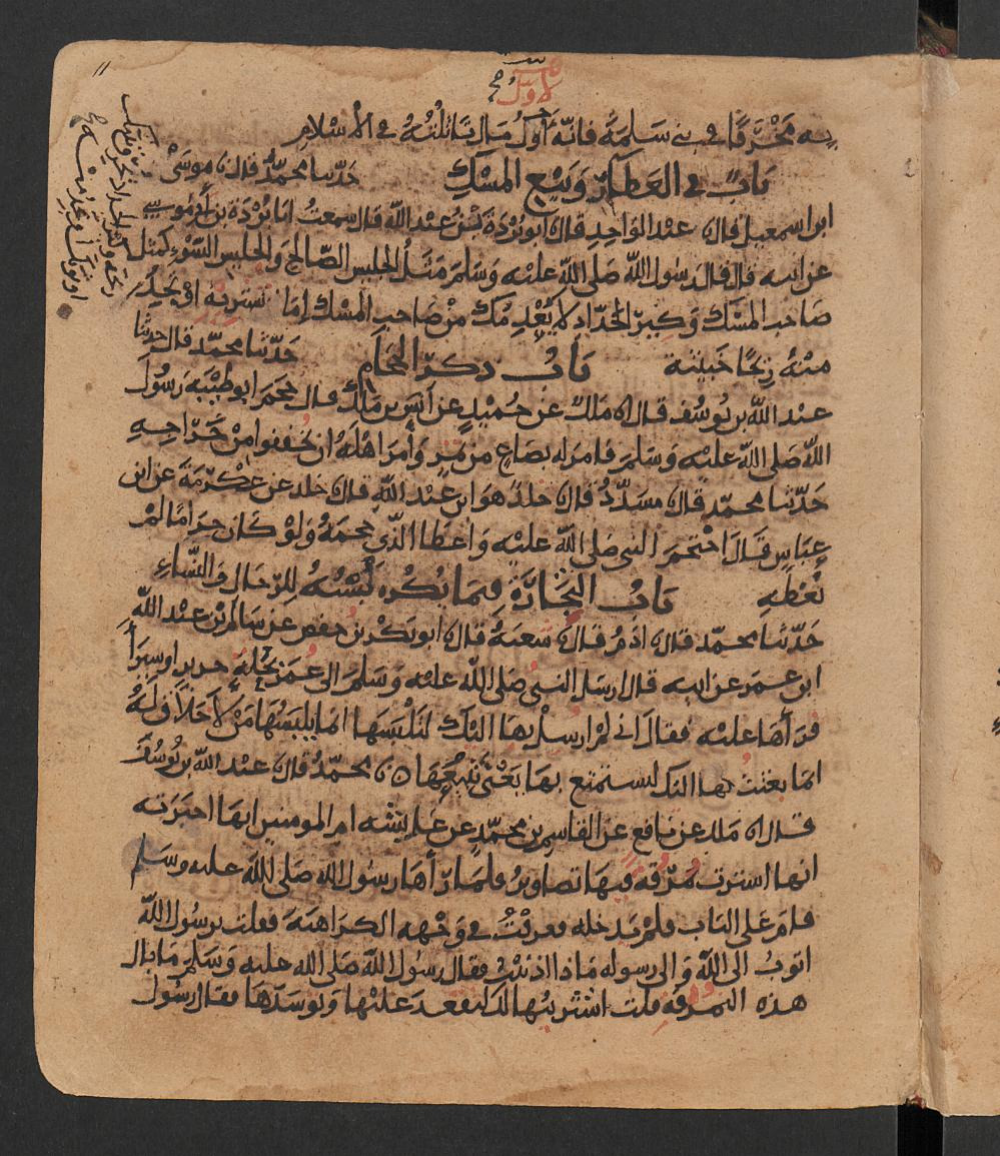 به مخرفا في بني سلمة فانه لأول مال تاثلته في الاسلام
باب في العطار وبيع المسك حدثنا محمد قال نا موسى
ابن اسمعيل قال نا عبد الواحد قال نا ابو بردة بن عبد الله قال سمعت ابا بردة بن أبي موسى
عن ابيه قال قال رسول الله صلى الله عليه وسلم مثل الجليس الصالح والجليس السوء كمثل
صاحب المسك وكير الحداد لا يعدمك من صاحب المسك إما تشتريه او تجد
منه ريحا خبيثة باب ذكر الحجام حدثنا محمد قال حدثنا
عبد الله بن يوسف قال انا ملك عن حميد عن انس بن مالك قال حجم ابو طيبة رسول
الله صلى الله عليه وسلم فامر له بصاع من تمر وأمر اهله ان يخففوا من خراجه
حدثنا محمد قال نا مسدد قال نا خلد هو ابن عبد الله قال نا خلد عن عكرمة عن ابن
عباس قال احتجم النبي صلى الله عليه واعطا الذي حجمه ولو كان حراما لم
يعطه باب التجارة فيما يكره لبسه للرجال والنساء
حدثنا محمد قال نا ادم قال نا شعبة قال نا ابو بكر بن حفص عن سالم بن عبد الله
ابن عمر عن ابيه قال ارسل النبي صلى الله عليه وسلم الى عمر بحلة حرير او سيرا
فرأها عليه فقال اني لم ارسل بها اليك لتلبسها انما يلبسها من لا خلاق له
انما بعثت بها اليك لتستمتع بها يعني تبيعها نا محمد قال نا عبد الله بن يوسف
قال انا ملك عن نافع عن القاسم بن محمد عن عايشه ام المومنين انها اخبرته
انها اشترت نمرقه فيها تصاوير فلما رأها رسول الله صلى الله عليه وسلم
قام على الباب فلم يدخله فعرفت في وجهه الكراهية فقلت يرسول الله
اتوب الى الله والى رسوله ماذا اذنبت فقال رسول الله صلى الله عليه وسلم ما بال
هذه النمرقه قلت اشتريتها لك لتقعد عليها وتوسدها فقال رسول